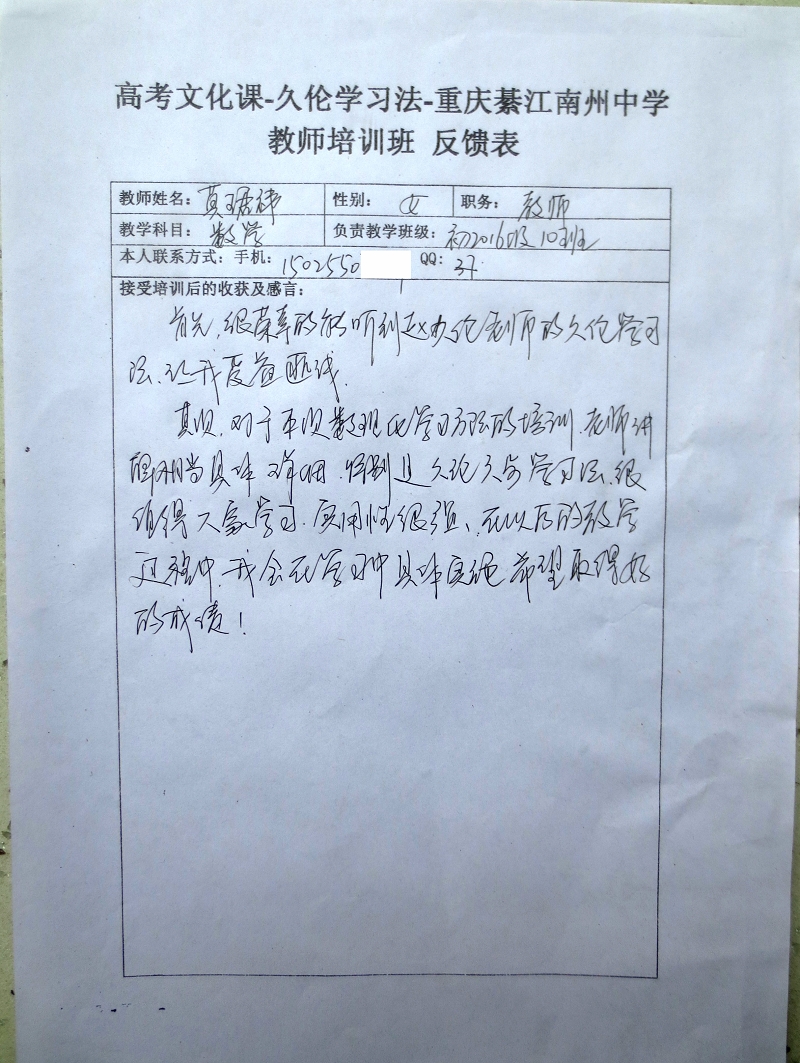 高考文化课-久伦学习法-重庆綦江南州中学
教师培训班 反馈表
教师姓名： 性别： 女 职务： 教师
教学科目： 数学 负责教学班级： 初2016级10班
本人联系方式：手机： 1502550 QQ： 37
接受培训后的收获及感言：
首先，很荣幸的能听到赵久伦老师的久伦学习
法，让我受益匪浅．
其次，对于本次数理化学习方法的培训，老师讲
解相当具体，详细．特别是久伦 学习法，很
值得大家学习．实用性很强、在以后的教学
过程中，我会在学习中具体实施，希望取得好
的成绩！